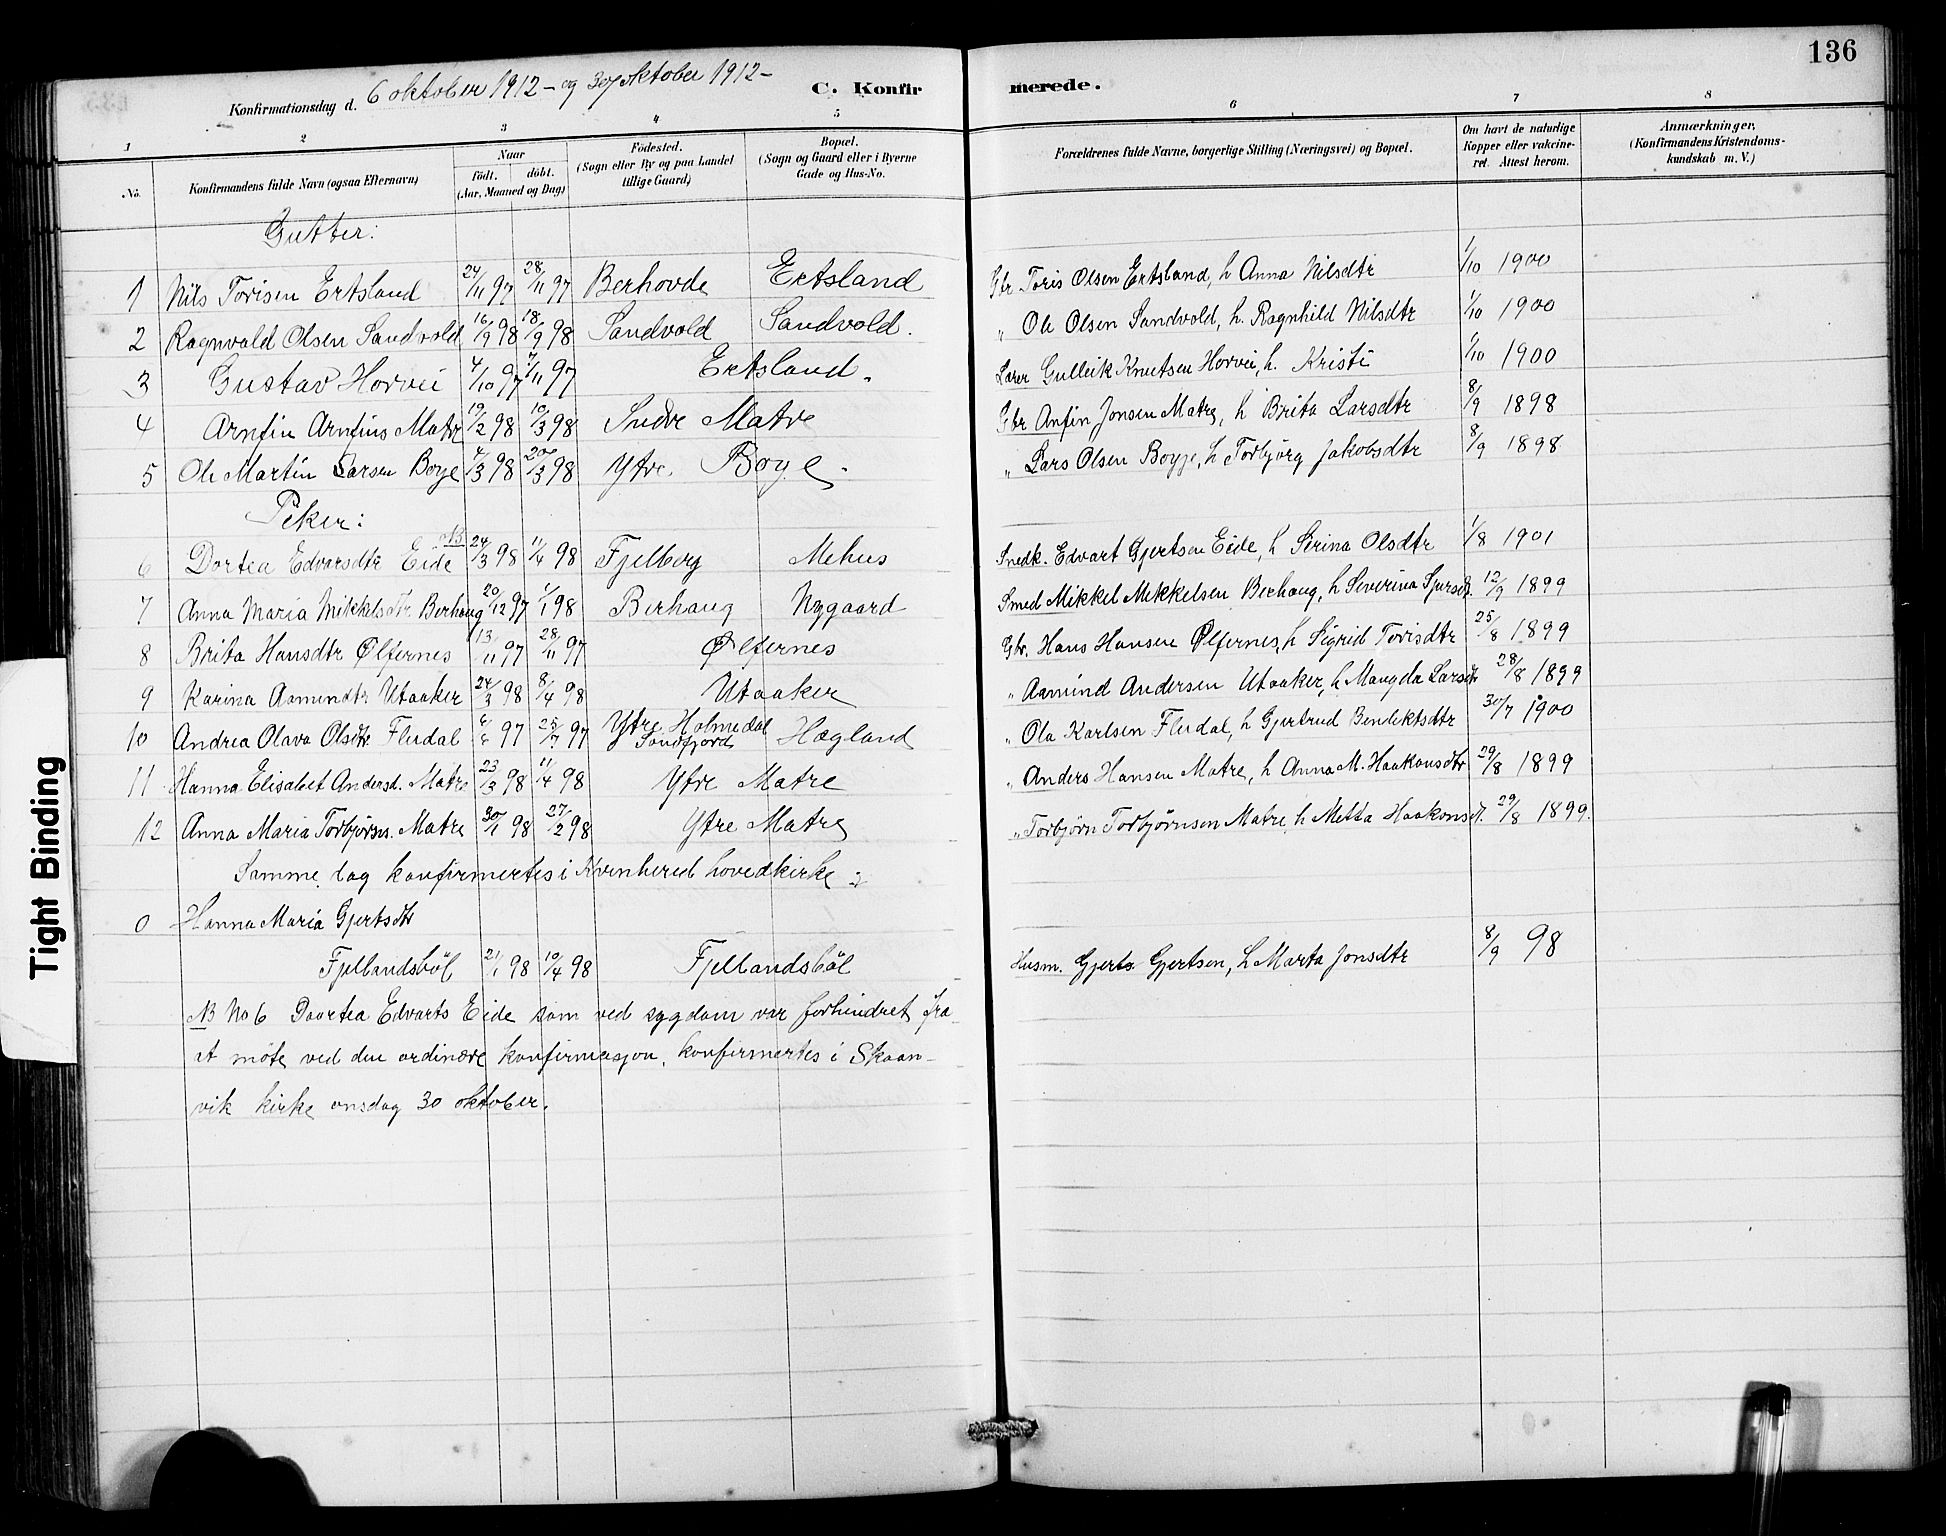 136
Konfirmationsdag d. 6 oktober 1912 - og 30 oktober 1912 -
C. Konfirmerede.
1 2 3 4 5 6 7 8
No.
Konfirmandens fulde Navn (ogsaa Efternavn)
Naar
født. døbt.
(Aar, Maaned og Dag)
Fødested.
(Sogn eller By og paa Landet
tillige Gaard)
Bopæl.
(Sogn og Gaard eller i Byerne
Gade og Hus-No.
Forældrenes fulde Navne, borgerlige Stilling (Næringsvei) og Bopæl.
Om havt de naturlige
Kopper eller vakcine-
ret. Attest herom.
Anmærkninger,
(Konfirmandens Kristendoms-
kundskab m. V.)
Gutter:
1 Nils Torisen Ertsland 24/11 97 28/11 97 Berhovde Ertsland Gbr Toris Olsen Ertsland, h Anna Nilsdtr 1/10 1900
2 Ragnvald Olsen Sandvold 16/9 98 18/9 98 Sandvold Sandvold. " Ole Olsen Sandvold, h. Ragnhild Nilsdtr 1/10 1900
3 Gustav Horvei 4/10 97 7/11 97 Ertsland. Lærer Gulleik Knutsen Horvei, h. Kristi 1/10 1900
4 Arnfin Arnfins Matre 19/2 98 10/3 98 Indre Matre Gbr Anfin Jonsen Matre, h Brita Larsdtr 8/9 1898
5 Ole Martin Larsen Boge 4/3 98 20/3 98 Ytre Boge. " Lars Olsen Boyje, h Torbjørg Jakobsdtr 8/9 1898
Piker:
NB
6 Dortea Edvarsdtr Eide 24/3 98 11/4 98 Fjelberg Mehus Snedk. Edvart Gjertsen Eide, h Serina Olsdtr 1/8 1901
7 Anna Maria Mikkelsdtr. Berhaug 20/12 97 1/1 98 Berhaug Nygaard Smed Mikkel Mikkelsen Berhaug, h Severina 12/9 1899
8 Brita Hansdtr Ølfernes 13/11 97 28/11 97 Ølfernes Gbr. Hans Hansen Ølfernes, h Sigrid Torisdtr 25/8 1899
9 Karina Aamundtr Utaaker 24/3 98 8/4 98 Utaaker " Aamund Andersen Utaaker, h Mangda Larsdtr 28/8 1899
10 Andrea Olava Olsdtr. Fludal 6/6 97 25/7 97 Ytre Holmedal Søndfjord Hægland " Ola Karlsen Fludal, h Gjertrud Bendiktsdtr 30/7 1900
11 Hanna Elisabet Andersd. Matre 23/3 98 11/4 98 Ytre Matre " Anders Hansen Matre, h Anna M. Haakonsdtr 29/8 1899
12 Anna Maria Torbjørsn. Matre 30/1 98 27/2 98 Ytre Matre " Torbjørn Torbjørnsen Matre, h Metta Haakonsd. 29/8 1899.
Samme dag konfirmertes i Kvinhered hovedkirke:
0 Hanna Maria Gjertsdtr
Fjellandsbøl 21/1 98 10/4 98 Fjellandsbøl Husm. Gjerts Gjertsen, h Marta Jonsdtr 8/9 98
NB No 6 Doartea Edvarts Eide som ved sygdom var forhindret fra
at møte ved den ordinære konfirmasjon, konfirmertes i Skaan-
vik kirke onsdag 30 oktober.
Tight Binding